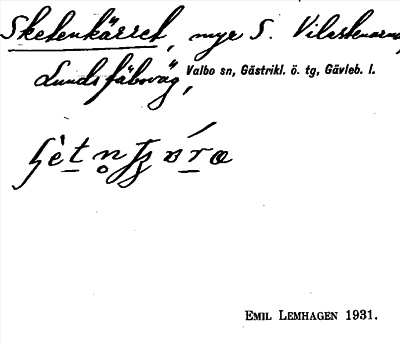 Sketenkärret, myr S. Vilostenarna,
Lundsfäboväg, Valbo sn, Gästrikl. ö. tg, Gävleb. l.
EMIL LEMHAGEN 1931.